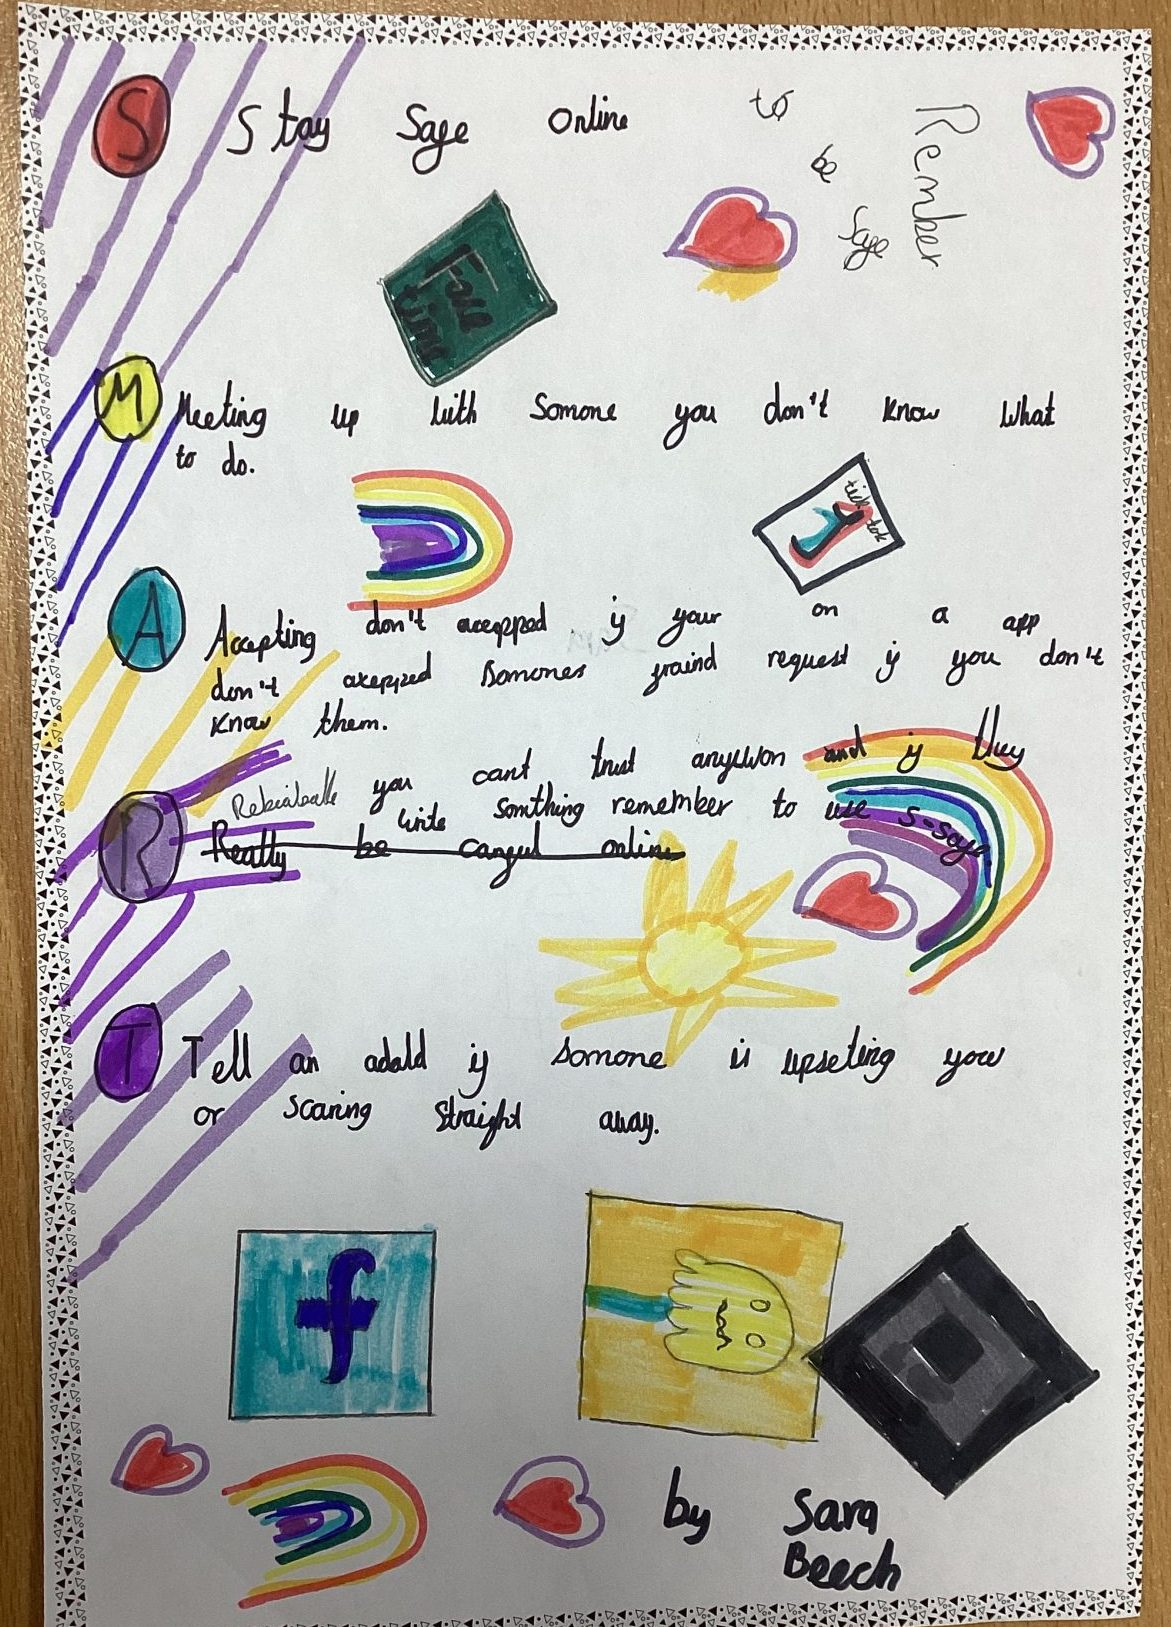 S Stay Safe Online
to be Safe
Remember
Face time
M Meeting up with Somone you don't know what
to do.
tick tok
A Accepting don't accepped if your on a app
don't axepped Somones fraind request if you don't
know them.
R you cant trust anywon and if they
write somthing remember to use s-safe.
Really be carful online
T Tell an adald if Somone is upseting you
or scaring straight away.
f
by Sara
Beech